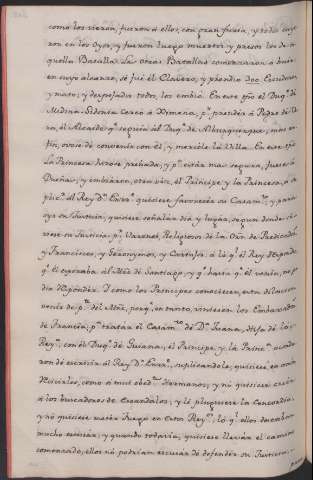 como los vieron, fueron à ellos, con gran furia, y todos huye
ron en los Oyos, y fueron luego muertos y presos los de a
quella Batalla. Las otras Batallas comenzaron à huir
en cuyo alcanze, se fuè el Clavero, y prendiò 200. Escuderos
y mato; y despojados todos, los embiò. En este año el Duq.e de
Medina-Sidonia cercò à Ximena, p.r prender à Pedro de Ve
ra, el Alcayde q.e seguia al Duq.e de Alburquerque; mas en
fin, ovose de convenir con èl, y diòle la Villa. En este
La Princesa preñada, y p.r estàr mas segura, fuese à
Dueñas; y embiaron, otra vez, el Principe y la Princesa, à su
plic.r al Rey D.n Enrr.e quisiese favorecer su Casam.to, y para
oyr en Justicia, quisiese señalàr dia y lugar, segun donde es
tuviese en Justicia p.r Varones, Religiosos de la Orn. de Predicad.s
y Franciscos, y Geronymos, y Cartuja: à lo q.l el Rey respond.o
q.e esperaba al Mre. de Santiago, y q.e hasta q.e èl veniese, no po
dia responder. I como los Principes conociesen, esta dilacion
venir de p.te del Mre. porq.e en tanto, viniesen los Embaxad.s
de Francia, p.r tratar el Casam.to de D.a Juana, dha de la
Rey.a con el Duq.e de Guiana; el Principe, y la Princ.a acorda
ron de escrivir al Rey D.n Enrr.e suplicandole, quisiese en
Recivirles, como à mui obed.tes Hermanos; y no quisiese creer
à los buscadores de Escandalos; y le pluguiese la Concordia
y no quisiese meter Fuego en estos Rey.s, lo q.l ellos
mucho evitàr; y quando todavia, quisiese llevàr el camino
comenzado, ellos no podrian escusàr de defender su Justicia.